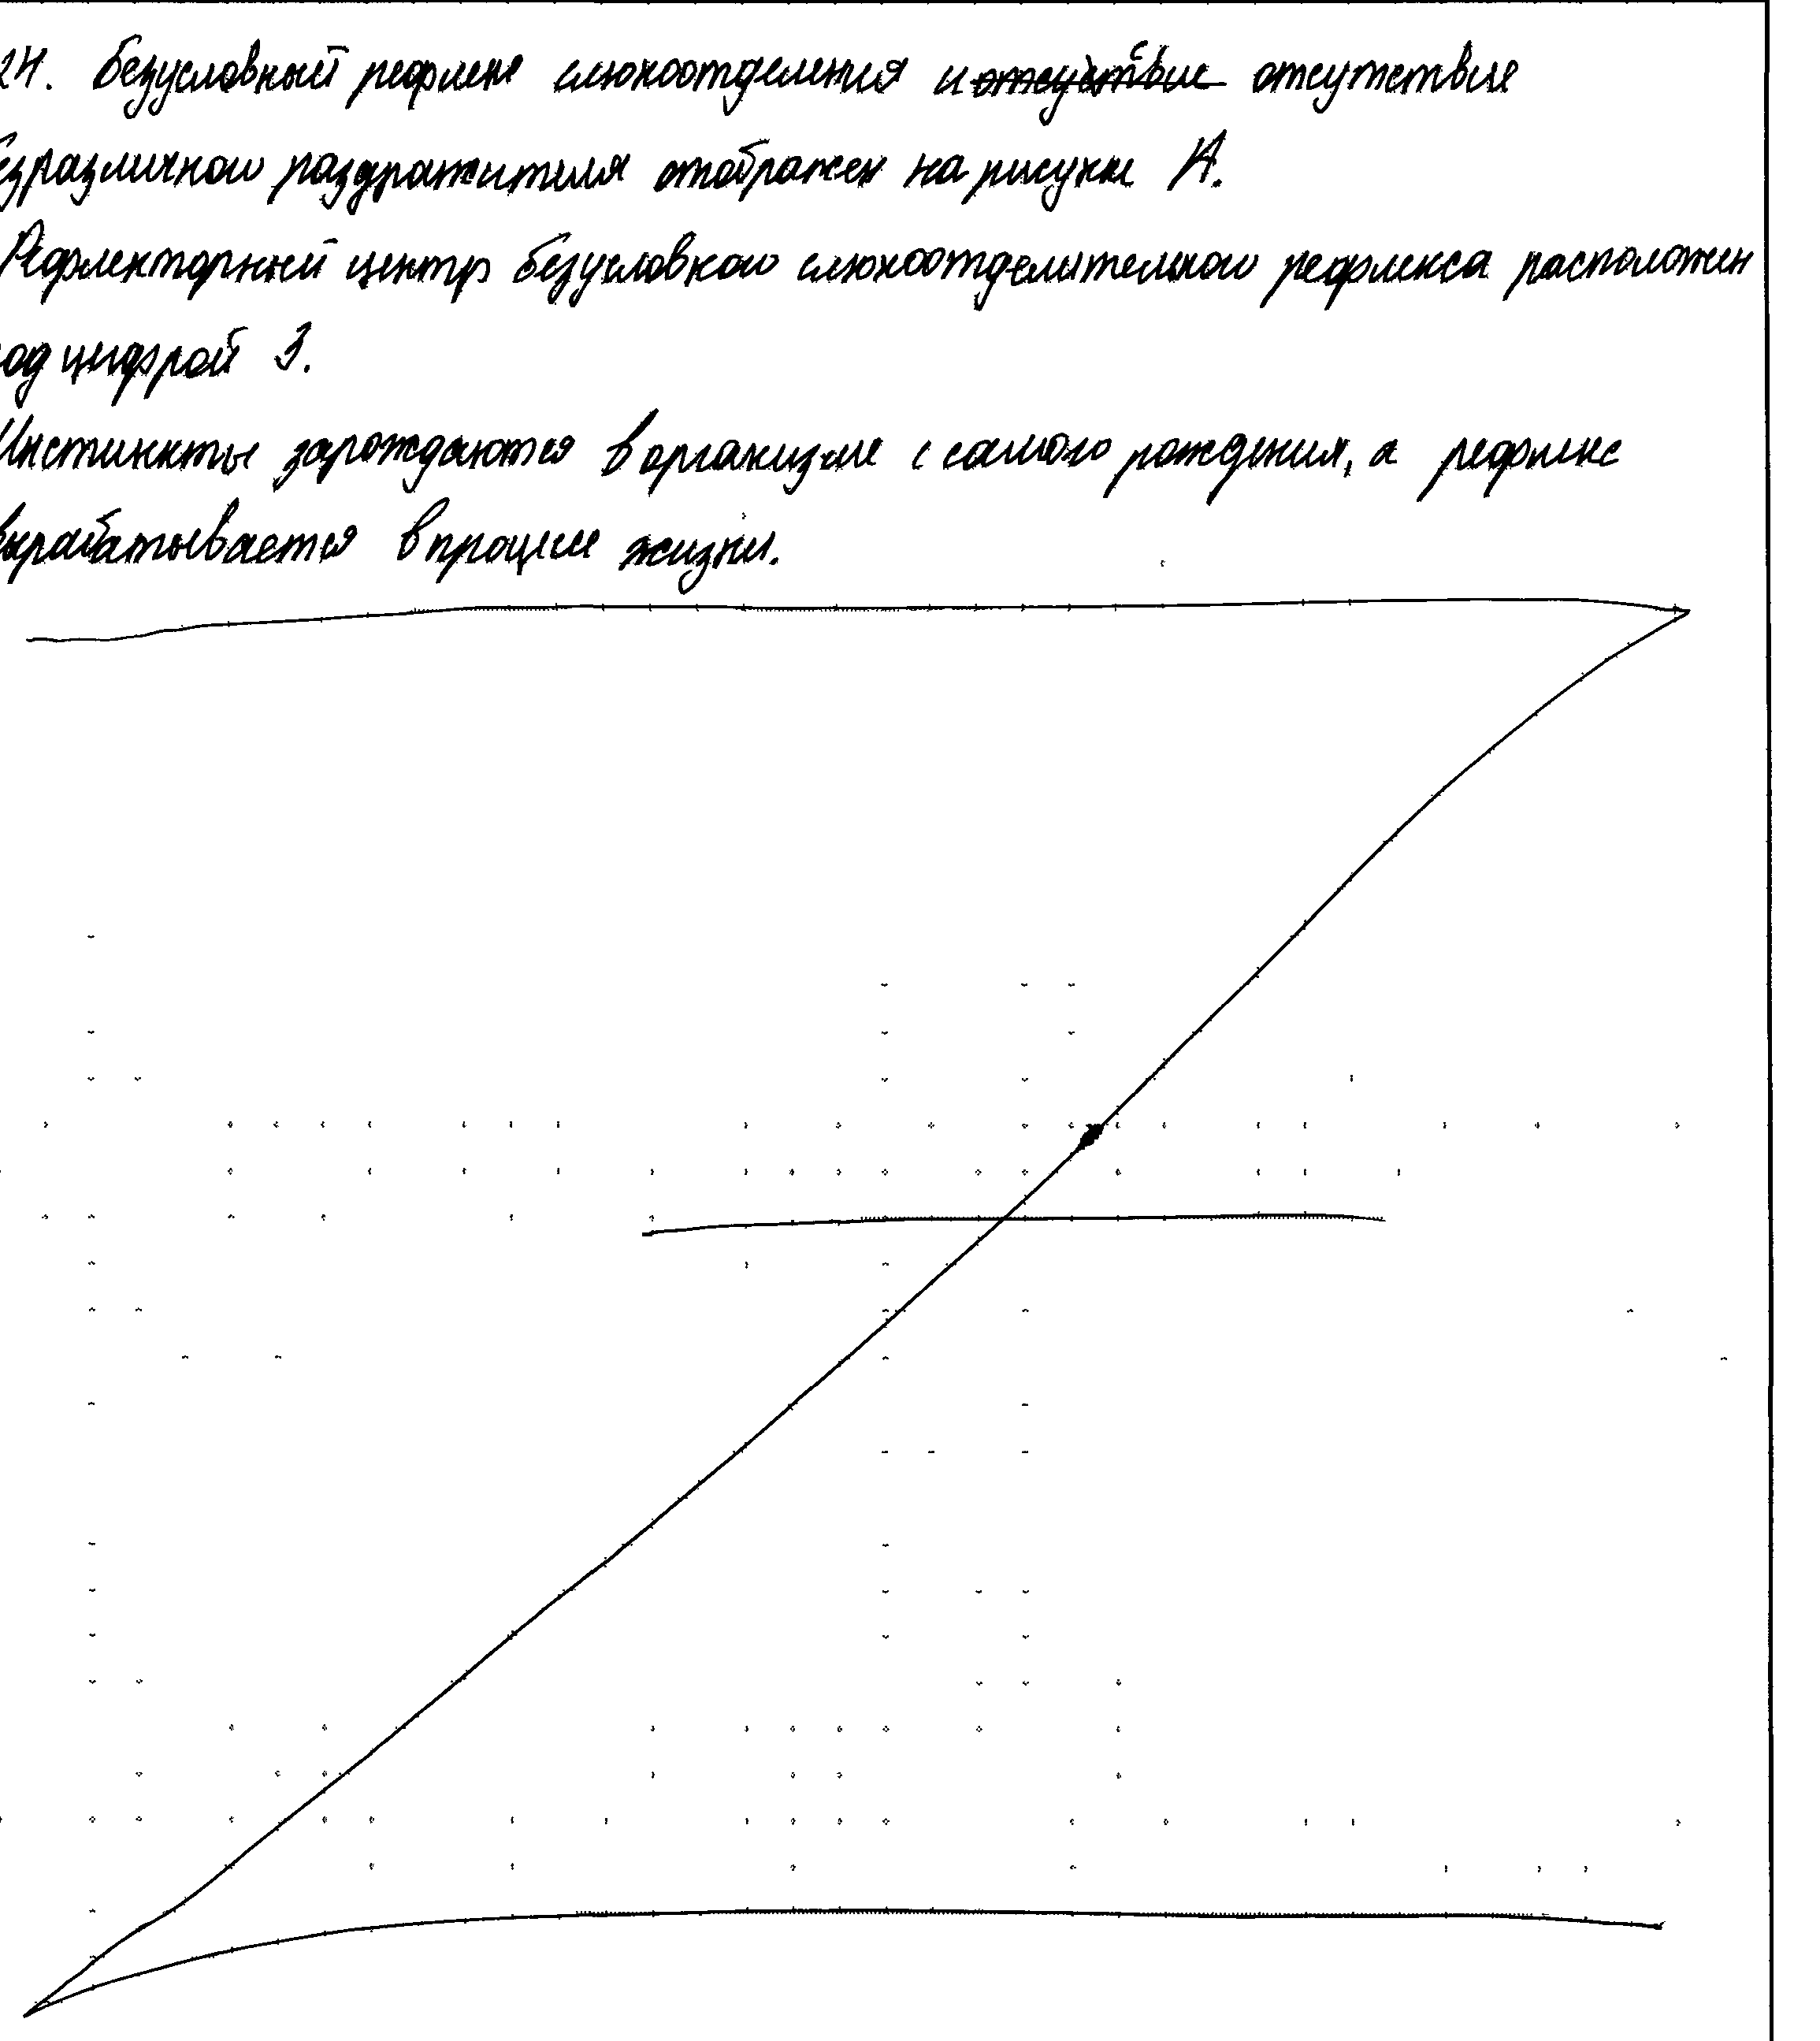 24. Безусловный рефлекс слюноотделения и отсутствие отсутствие
езразличного раздражителя отображен на рисунке А.
Рефлекторный центр безусловного слюноотделительного рефлекса расположен
од цифрой 3.
Инстинкты зарождаются в организме с самого рождения, а рефлекс
вырабатывается в процессе жизни.